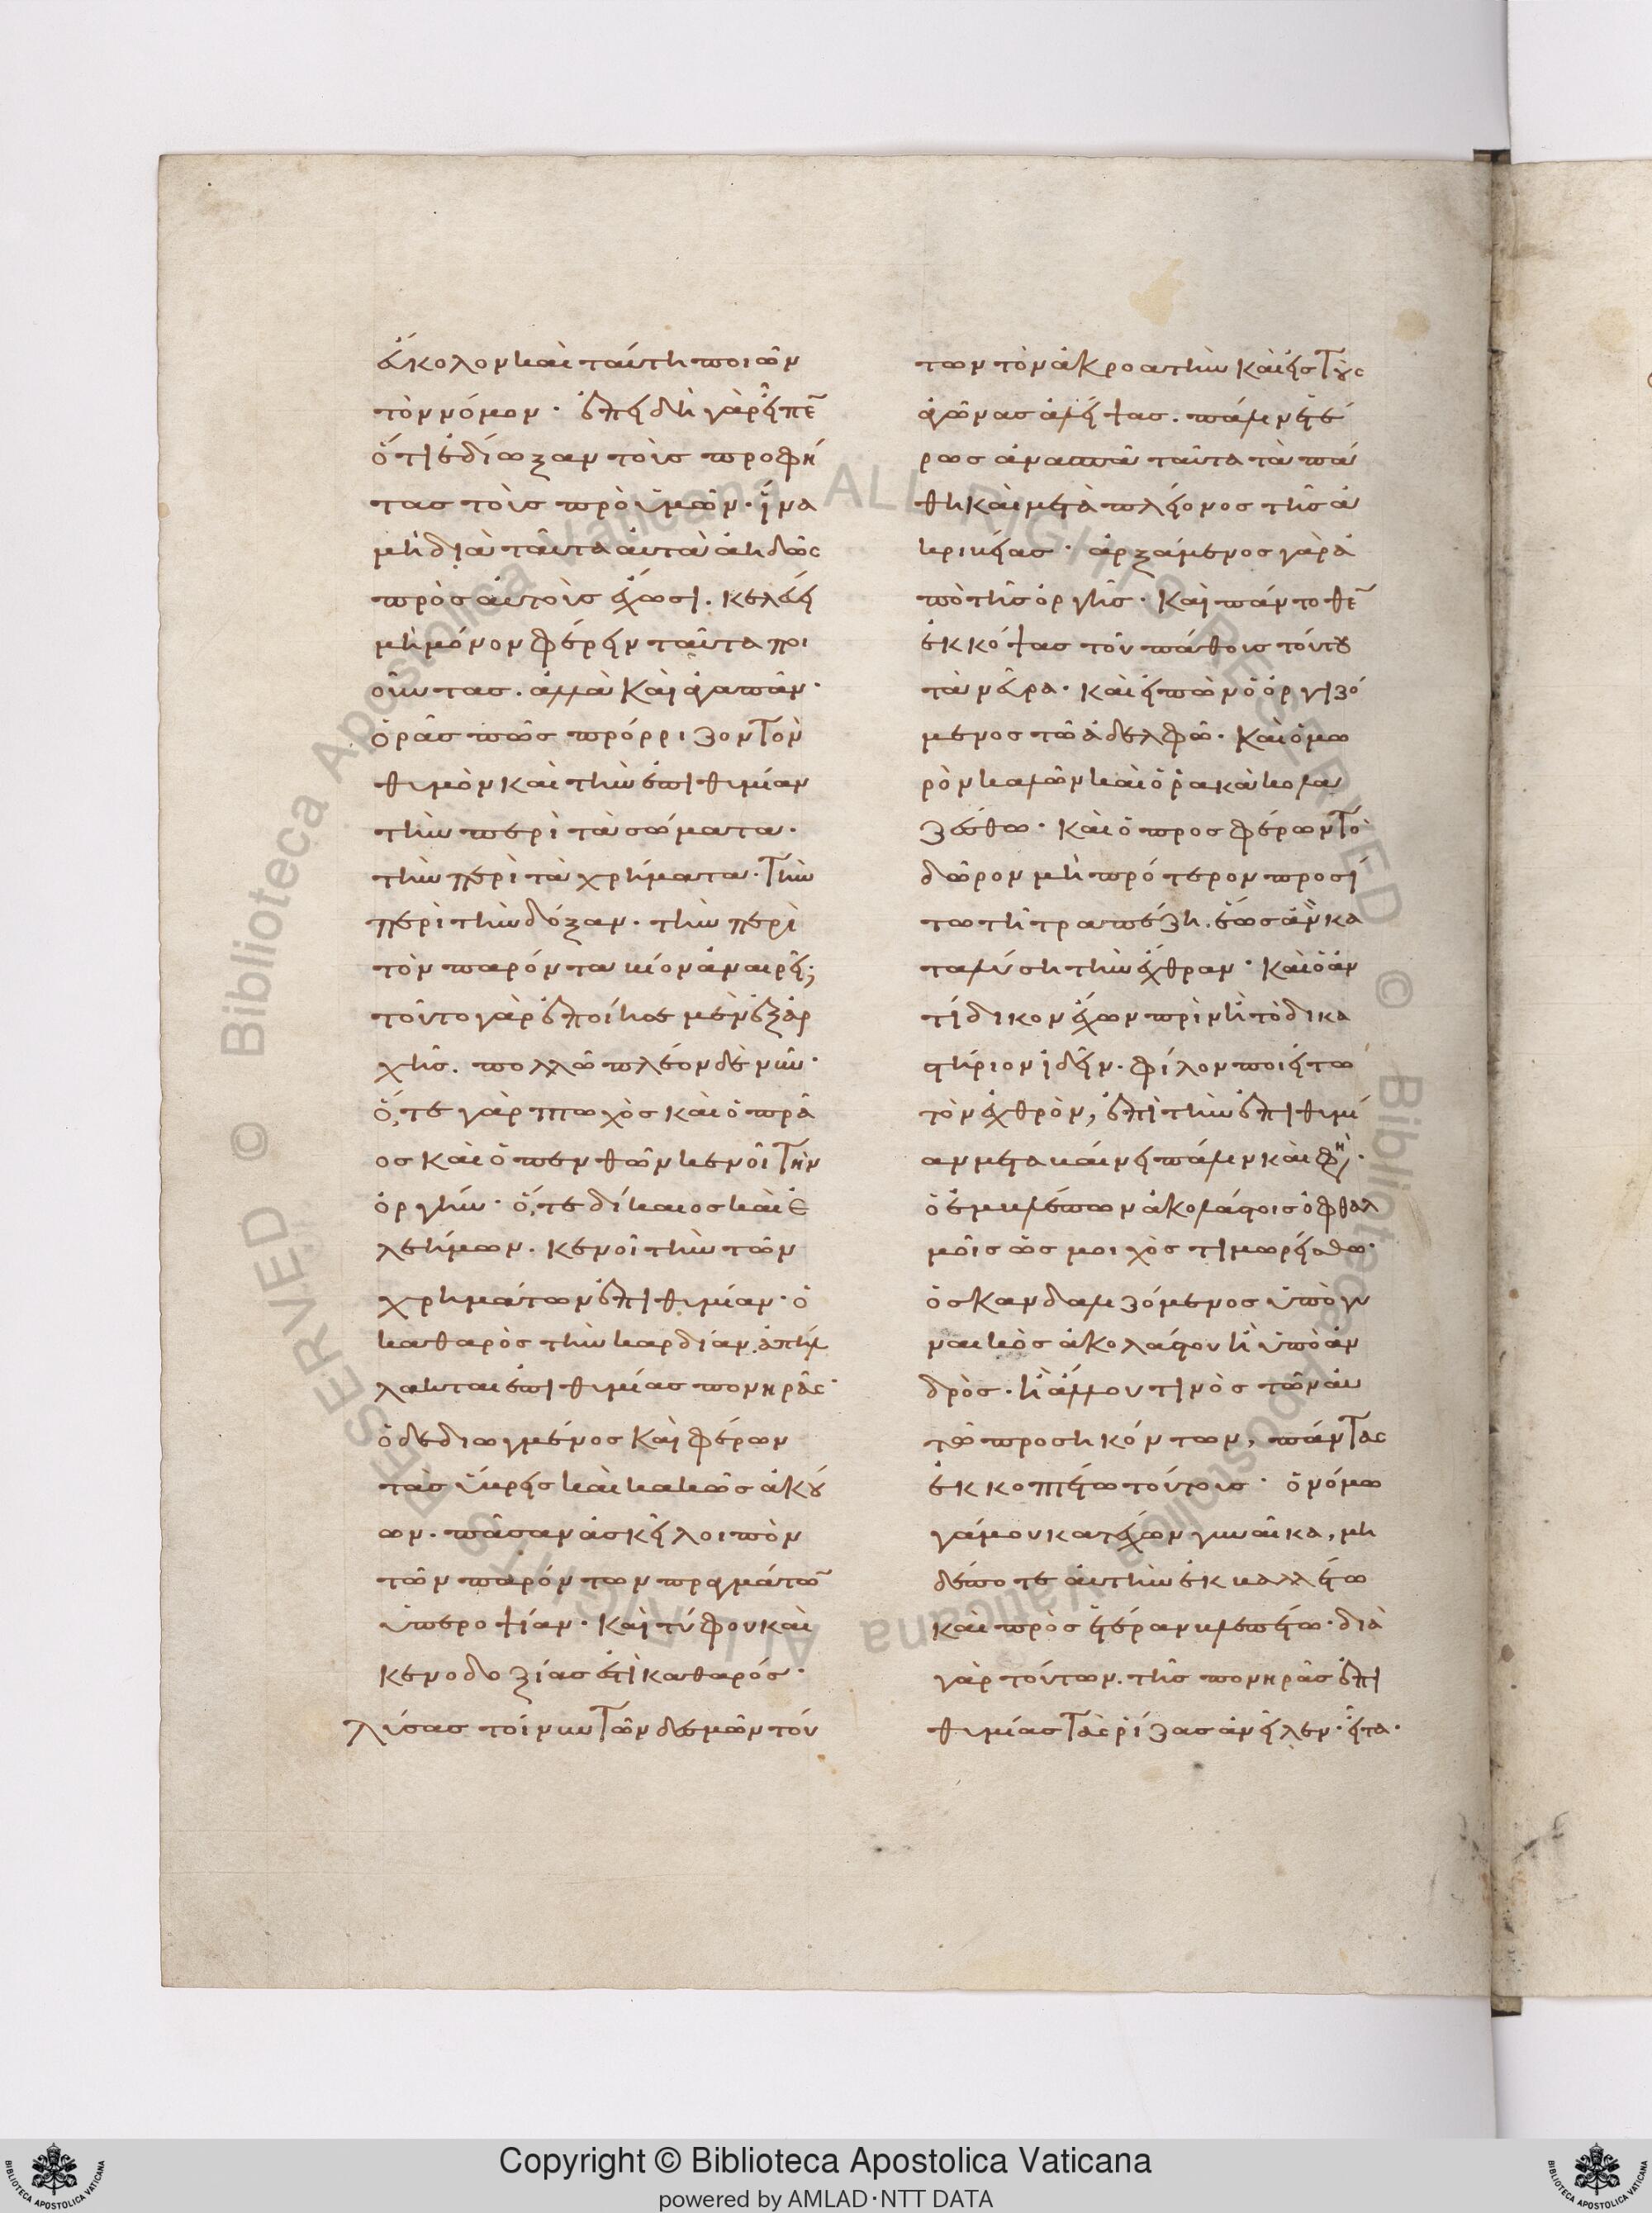 εὔκολον καὶ ταύτη ποιῶν
τὸν νόμον· ἐπειδὴ γὰρ εἶπε̅
ὅτι ἐδίωξαν τοὺς προφή
τας τοὺς πρὸ ὑμῶν· ἵνα
μὴ διὰ ταῦτα αὐτὰ ἀηδῶς
πρὸς αὐτοὺς ἔχωσι. κελεύει
μὴ μόνον φέρειν ταῦτα ποι
οῦντας. ἀλλὰ καὶ ἀγαπᾶν·
ὁρᾶς πῶς πρόρριζον τὸν
θυμὸν καὶ τὴν ἐπιθυμίαν
τὴν περὶ τὰ σώματα·
τὴν περὶ τὰ χρήματα· τὴν
περὶ τὴν δόξαν· τὴν περὶ
τὸν παρόντα βίον ἀναιρεῖ;
τοῦτο γὰρ ἐποίησε μὲν ἐξ ἀρ
χῆς. πολλῶ πλέον δὲ νῦν·
ὅ, τε γὰρ πτωχὸς καὶ ὁ πρᾶ
ος καὶ ὁ πενθῶν κενοῖ τὴν
ὀργήν· ὅ, τε δίκαιος καὶ ἐ
λεήμων. κενοῖ τὴν τῶν
χρημάτων ἐπιθυμίαν· ὁ
καθαρὸς τὴν καρδίαν, ἀπήλ
λακται ἐπιθυμίας πονηρᾶς·
ὁ δεδιωγμένος καὶ φέρων
τὰς ὕβρεις καὶ κακῶς ἀκού
ων. πᾶσαν ἀσκεῖ λοιπὸν
τῶν παρόντων πραγμάτω̅
ὑπεροψίαν· καὶ τύφου καὶ
κενοδοξίας ἐστὶ καθαρός·
λύσας τοίνυν τῶν δεσμῶν τού
των τὸν ἀκροατὴν καὶ εἰς τοὺς
ἀγῶνας ἀλείψας. πάλιν ἑτέ
ρως ἀνασπᾶ ταῦτα τὰ πά
θη καὶ μετὰ πλείονος τῆς ἀ
κριβείας· ἀρξάμενος γὰρ ἀ
πὸ τῆς ὀργῆς· καὶ πάντοθε̅
ἐκκόψας τοῦ πάθους τούτου
τὰ νεῦρα· καὶ εἰπὼν ὁ ὀργιζό
μενος τῶ ἀδελφῶ· καὶ ὁ μω
ρὸν καλῶν καὶ ὁ ῥακὰ κολα
ζέσθω· καὶ ὁ προσφέρων τὸ
δῶρον μὴ πρότερον προσί
τω τῆ τραπέζη. ἕως ἂν κα
ταλύση τὴν ἔχθραν· καὶ ὁ ἀν
τίδικον ἔχων πρὶν ἢ τὸ δικα
στήριον ἰδεῖν. φίλον ποιείτω
τὸν ἐχθρὸν, ἐπὶ τὴν ἐπιθυμί
αν μεταβαίνει πάλιν καί φη(σι)·
ὁ ἐμβλέπων ἀκολάστοις ὀφθαλ
μοῖς ὡς μοιχὸς τιμωρείσθω·
ὁ σκανδαλιζόμενος ὑπὸ γυ
ναικὸς ἀκολάστου ἢ ὑπὸ ἀν
δρὸς. ἢ ἄλλου τινὸς τῶν αὐ
τῶ προσηκόντων, πάντας
ἐκκοπτέτω τούτους· ὁ νόμω
γάμου κατέχων γυναῖκα, μη
δέποτε αὐτὴν ἐκβαλλέτω
καὶ πρὸς ἑτέραν βλεπέτω· διὰ
γὰρ τούτων. τῆς πονηρᾶς ἐπι
θυμίας τὰς ῥίζας ἀνεῖλεν· εἶτα·
Copyright © Biblioteca Apostolica Vaticana
powered by AMLAD·NTT DATA